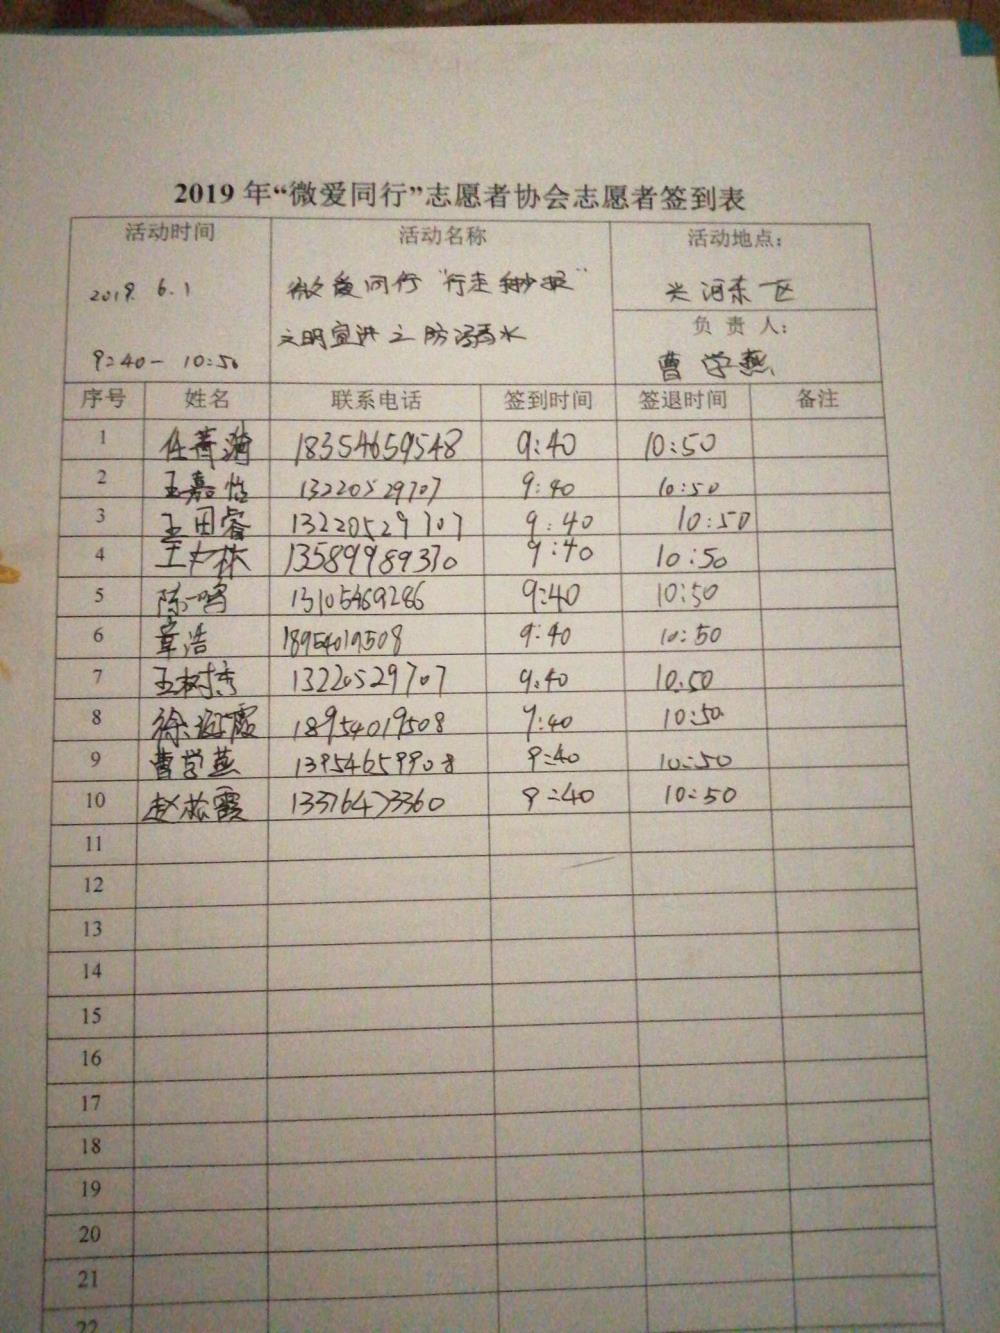 2019 年“微爱同行”志愿者协会志愿者签到表
活动时间 活动名称 活动地点：
2019. 6.1 微爱同行“行走 兴河东区
文明宣讲之防溺水 负 责 人：
9:40- 10:50 曹学燕
序号 姓名 联系电话 签到时间 签退时间 备注
1 任菁 18354659548 9:40 10:50
2 王嘉怡 13220529707 9:40 10:50
3 王田睿 13220529707 9:40 10:50
4 王 13589989370 9:40 10:50
5 陈一鸣 13105469286 9:40 10:50
6 章浩 18954019508 9:40 10:50
7 王树秀 13220529707 9:40 10.50
8 徐海霞 18954019508 9:40 10:50
9 曹学燕 13954659908 9:40 10:50
10 赵松霞 13376473360 9:40 10:50
11
12
13
14
15
16
17
18
19
20
21
22